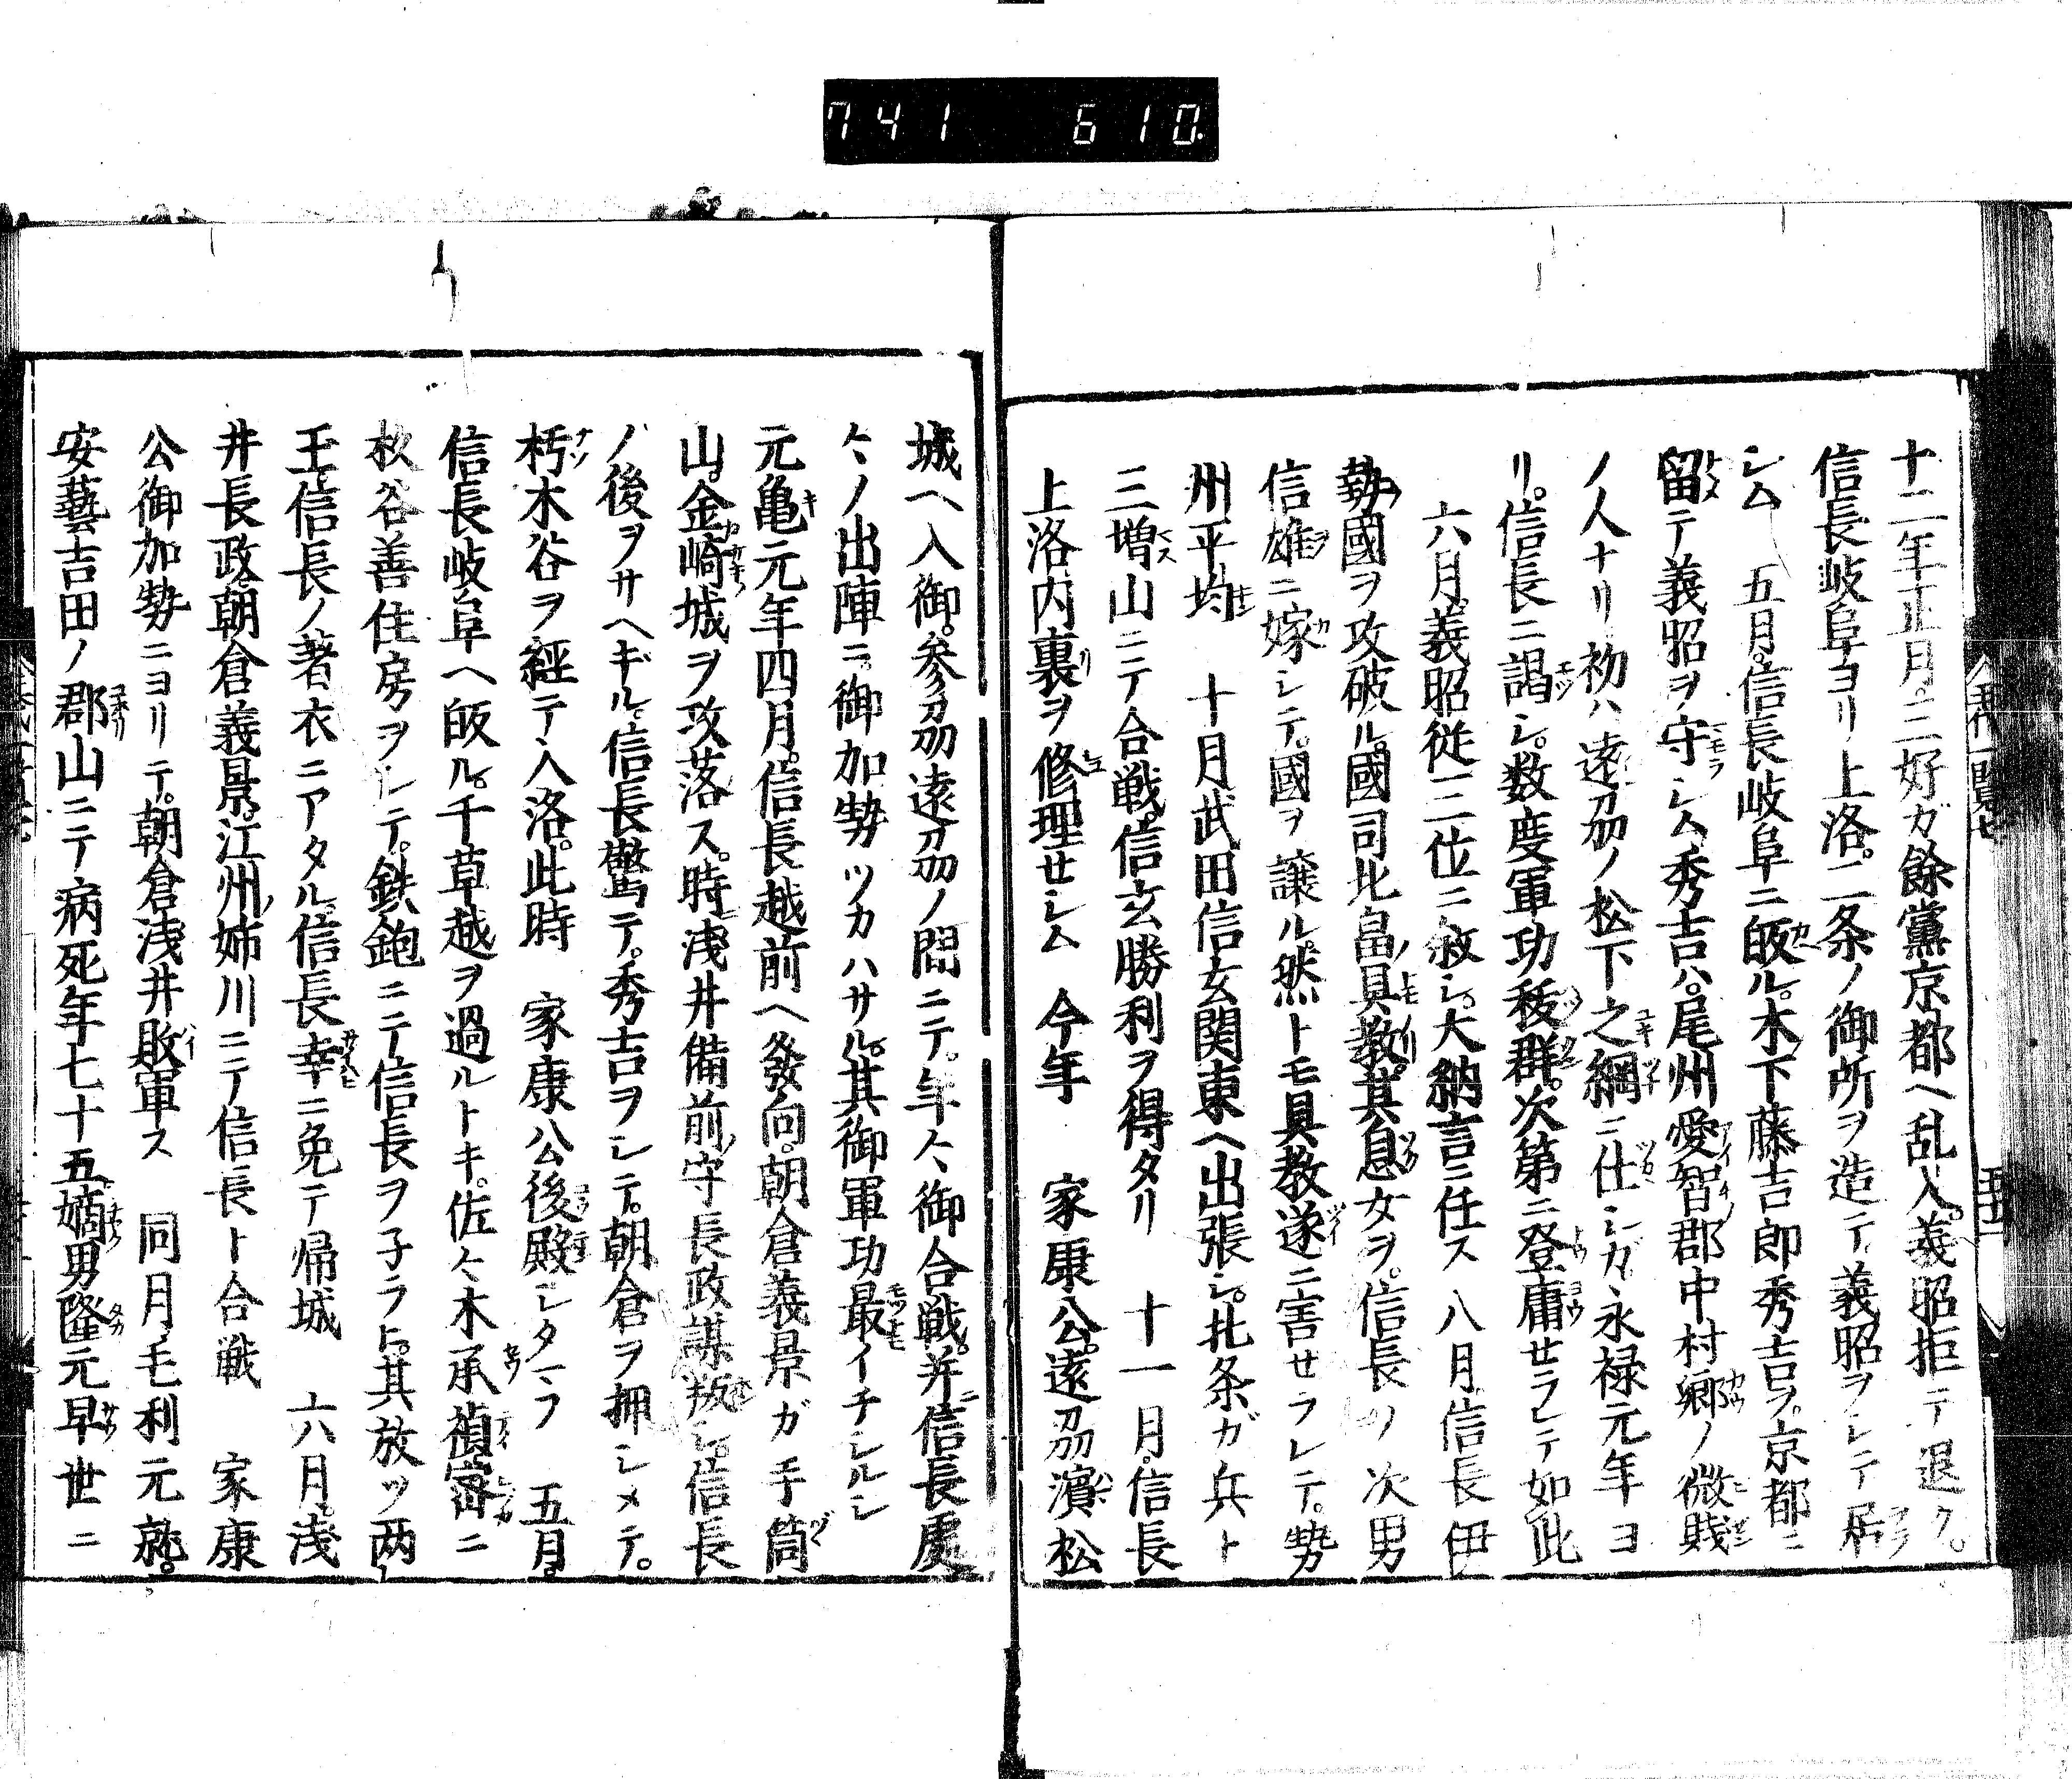 741 610
十二年正月。三好ガ餘黨京都ヘ乱入。義昭拒テ退ク。
信長岐阜ヨリ上洛。二条ノ御所ヲ造テ義昭ヲシテ居
シム 五月。信長岐阜ニ皈ル。木下藤吉郎秀吉ヲ。京都ニ
留テ義昭ヲ守シム秀吉ハ。尾州愛智郡中村郷ノ微賤
ノ人ナリ初ハ遠刕ノ松下之綱ニ仕シガ永禄元年ヨ
リ。信長ニ謁シ。数度軍功秡群。次第ニ登庸セラレテ如此
六月。義昭従三位ニ叙シ。大納言ニ任ス 八月信長伊
勢國ヲ攻破ル。國司北畠具教。其息女ヲ。信長ノ次男
信雄ニ嫁シテ。國ヲ譲ル。然トモ具教遂ニ害セラレテ。勢
州平均 十月武田信玄関東ヘ出張シ。北条ガ兵ト
三増山ニテ合戦。信玄勝利ヲ得タリ 十一月。信長
上洛内裏ヲ修理セシム 今年 家康公。遠刕濱松
城ヘ入御。参刕遠刕ノ間ニテ。年々御合戦。并ニ信長處
々ノ出陣ニ。御加勢ツカハサル。其御軍功最イチシルシ
元亀元年四月。信長越前ヘ發向。朝倉義景ガ手筒
山。金崎城ヲ攻落ス。時ニ淺井備前守長政謀叛シ。信長
ノ後ヲサヘギル。信長驚テ。秀吉ヲシテ。朝倉ヲ押シメテ。
朽木谷ヲ經テ入洛。此時 家康公後殿シタマフ 五月。
信長岐阜ヘ皈ル。千草越ヲ過ルトキ。佐々木承禎密ニ
杦谷善住房ヲシテ。鉄鉋ニテ信長ヲ子ラヒ。其放ツ两
玉。信長ノ著衣ニアタル。信長幸ニ免テ帰城 六月。淺
井長政。朝倉義景。江州姉川ニテ信長ト合戦 家康
公御加勢ニヨリテ。朝倉淺井敗軍ス 同月毛利元就。
安藝吉田ノ郡山ニテ病死年七十五嫡男隆元早世ニ